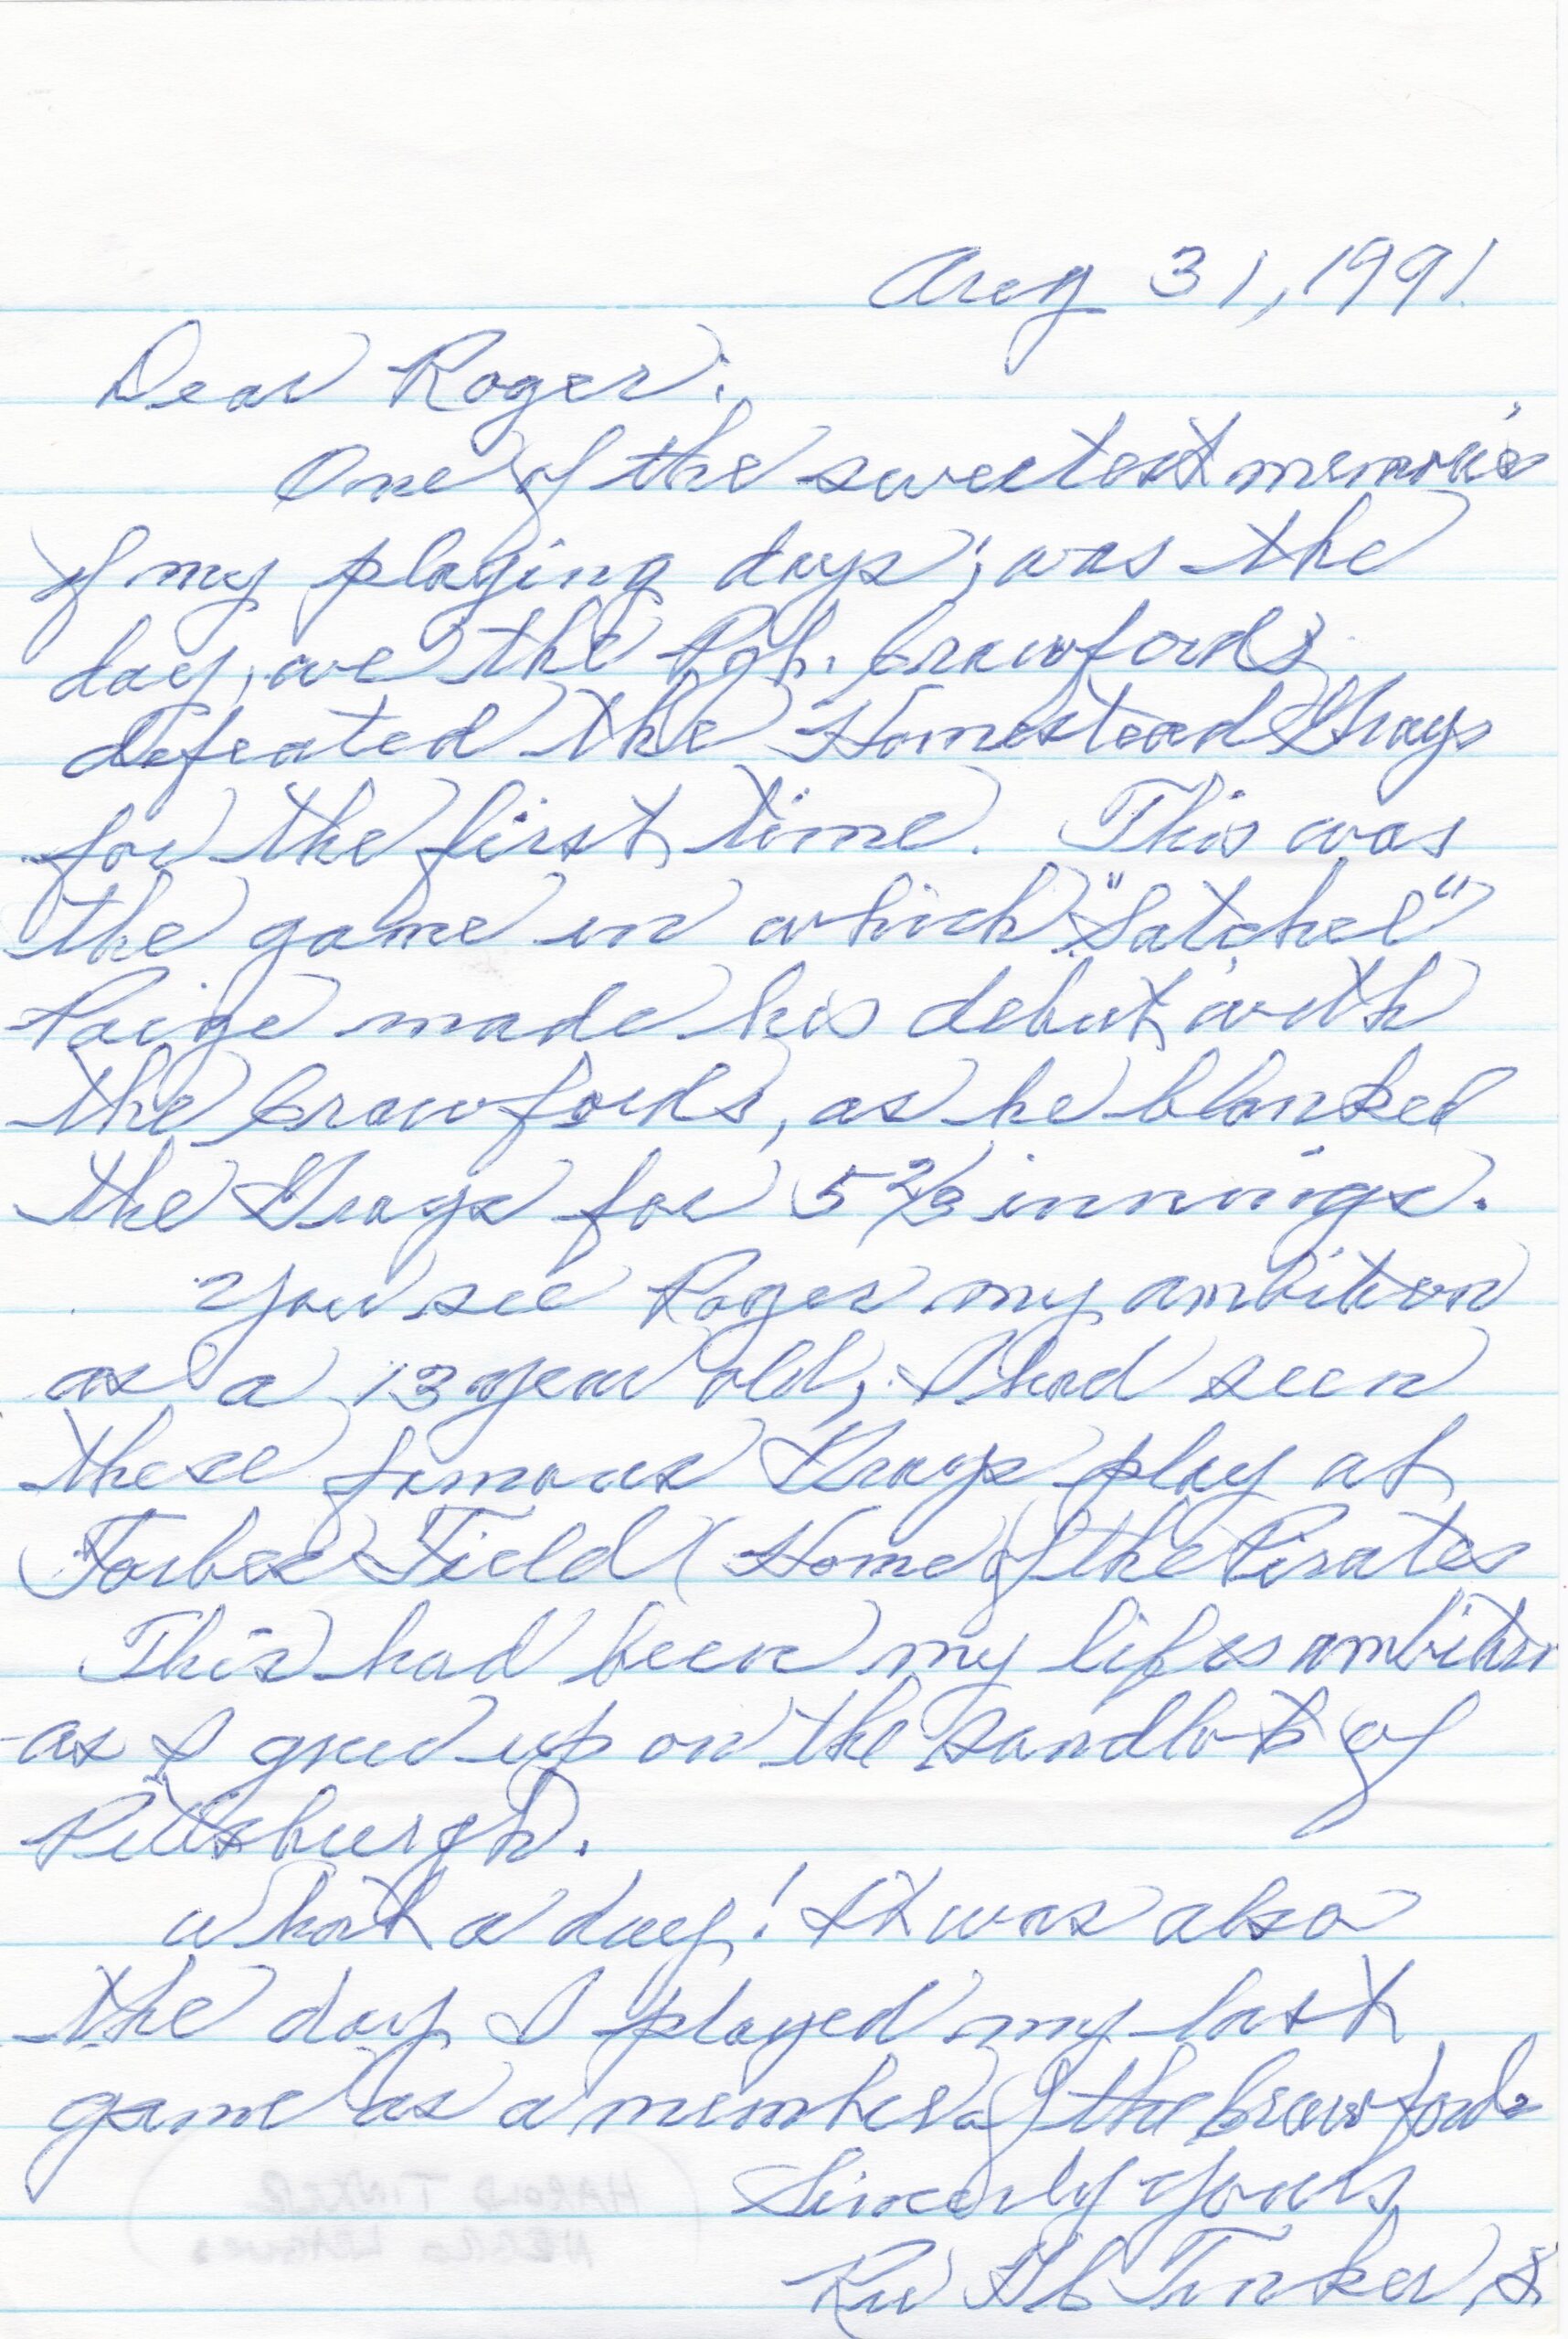 Aug 31, 1991
Dear Roger:
One of the sweetest memories
of my playing days; was the
day, we the Pgh. Crawfords
defeated the Homestead Grays
for the first time. This was
the game in which "Satchel"
Paige made his debut with
the Crawfords, as he blanked
the Grays for 5 2/3 innings.
You see Roger my ambition
as a 13 year old, I had seen
these famous Grays play at
Forbes Field (Home of the Pirates
This had been my lifes ambition
as I grew up on the sandlots of
Pittsburgh.
What a day! It was also
the day I played my last
game as a member of the Crawfords
Sincerly yours
Rev HC Tinker, Sr
(HAROLD TINKER
NEGRO LEAGUES